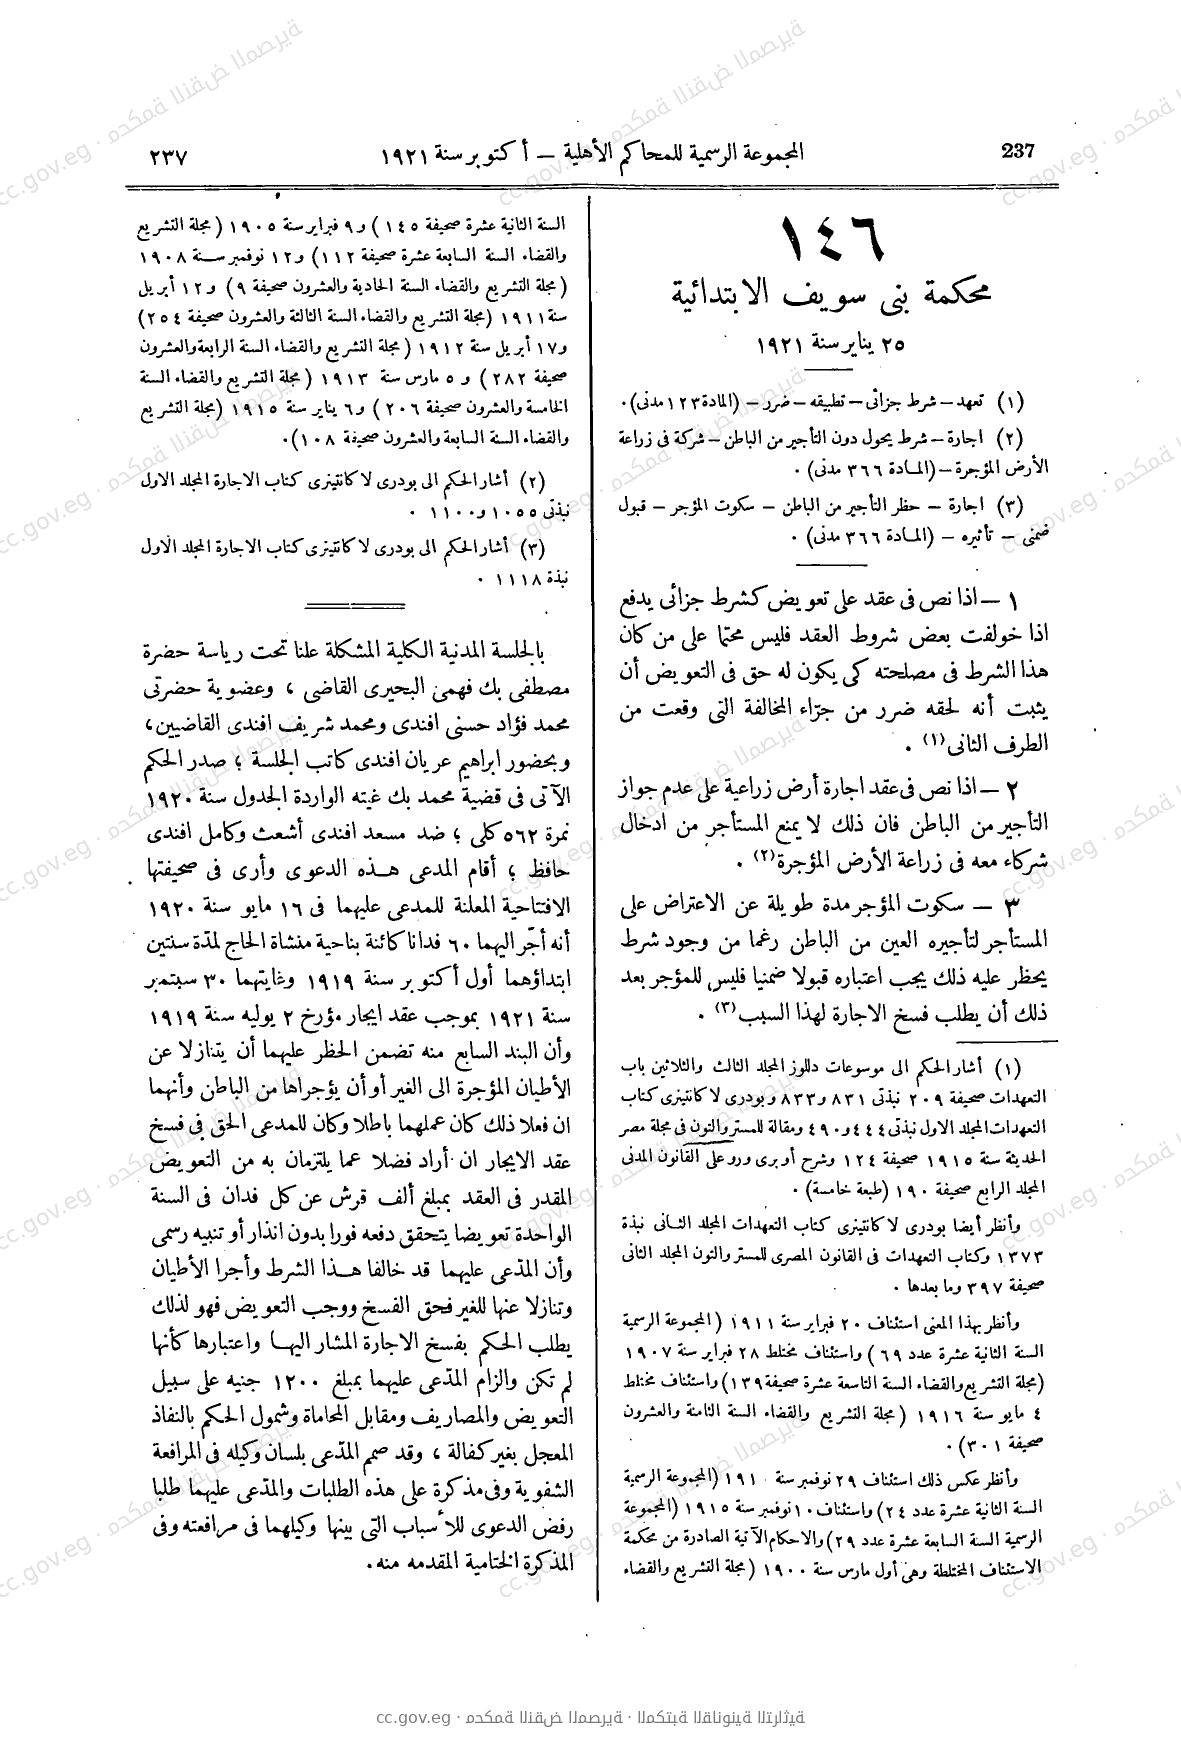 237
المجموعة الرسمية للمحاكم الأهلية — أكتوبر سنة ١٩٢١
٢٣٧
١٤٦
محكمة بنى سويف الابتدائية
٢٥ يناير سنة ١٩٢١
(١) تعهد – شرط جزائى – تطبيقه – ضرر – (المادة ١٢٣ مدنى).
(٢) اجارة – شرط يحول دون التأجير من الباطن – شركة فى زراعة
الأرض المؤجرة – (المادة ٣٦٦ مدنى).
(٣) اجارة – حظر التأجير من الباطن – سكوت المؤجر – قبول
ضمنى – تأثيره – (المادة ٣٦٦ مدنى).
١ – اذا نص فى عقد على تعويض كشرط جزائى يدفع
اذا خولفت بعض شروط العقد فليس محتما على من كان
هذا الشرط فى مصلحته كى يكون له حق فى التعويض أن
يثبت أنه لحقه ضرر من جرّاء المخالفة التى وقعت من
الطرف الثانى (١).
٢ – اذا نص فى عقد اجارة أرض زراعية على عدم جواز
التأجير من الباطن فان ذلك لا يمنع المستأجر من ادخال
شركاء معه فى زراعة الأرض المؤجرة (٢).
٣ – سكوت المؤجر مدة طويلة عن الاعتراض على
المستأجر لتأجيره العين من الباطن رغما من وجود شرط
يحظر عليه ذلك يجب اعتباره قبولا ضمنيا فليس للمؤجر بعد
ذلك أن يطلب فسخ الاجارة لهذا السبب (٣).
(١) أشار الحكم الى موسوعات دللوز المجلد الثالث والثلاثين باب
التعهدات صحيفة ٢٠٩ نبذتى ٨٣١ و ٨٣٣ وبودرى لاكانتينرى كتاب
التعهدات المجلد الاول نبذتى ٤٤٤ و ٤٩٠ ومقالة للمستر والتون فى مجلة مصر
الحديثة سنة ١٩١٥ صحيفة ١٢٤ وشرح أوبرى ورو على القانون المدنى
المجلد الرابع صحيفة ١٩٠ (طبعة خامسة).
وأنظر أيضا بودرى لاكانتينرى كتاب التعهدات المجلد الثانى نبذة
١٣٧٣ وكتاب التعهدات فى القانون المصرى للمستر والتون المجلد الثانى
صحيفة ٣٩٧ وما بعدها.
وأنظر بهذا المعنى استئناف ٢٠ فبراير سنة ١٩١١ (المجموعة الرسمية
السنة الثانية عشرة عدد ٦٩) واستئناف مختلط ٢٨ فبراير سنة ١٩٠٧
(مجلة التشريع والقضاء السنة التاسعة عشرة صحيفة ١٣٩) واستئناف مختلط
٤ مايو سنة ١٩١٦ (مجلة التشريع والقضاء السنة الثامنة والعشرون
صحيفة ٣٠١).
وأنظر عكس ذلك استئناف ٢٩ نوفمبر سنة ١٩١٠ (المجموعة الرسمية
السنة الثانية عشرة عدد ٢٤) واستئناف ١٠ نوفمبر سنة ١٩١٥ (المجموعة
الرسمية السنة السابعة عشرة عدد ٢٩) والاحكام الآتية الصادرة من محكمة
الاستئناف المختلطة وهى أول مارس سنة ١٩٠٠ (مجلة التشريع والقضاء
السنة الثانية عشرة صحيفة ١٤٥) و ٩ فبراير سنة ١٩٠٥ (مجلة التشريع
والقضاء السنة السابعة عشرة صحيفة ١١٢) و ١٢ نوفمبر سنة ١٩٠٨
(مجلة التشريع والقضاء السنة الحادية والعشرون صحيفة ٩) و ١٢ أبريل
سنة ١٩١١ (مجلة التشريع والقضاء السنة الثالثة والعشرون صحيفة ٢٥٤)
و ١٧ أبريل سنة ١٩١٢ (مجلة التشريع والقضاء السنة الرابعة والعشرون
صحيفة ٢٨٢) و ٥ مارس سنة ١٩١٣ (مجلة التشريع والقضاء السنة
الخامسة والعشرون صحيفة ٢٠٦) و ٦ يناير سنة ١٩١٥ (مجلة التشريع
والقضاء السنة السابعة والعشرون صحيفة ١٠٨).
(٢) أشار الحكم الى بودرى لاكانتينرى كتاب الاجارة المجلد الاول
نبذتى ١٠٥٥ و ١١٠٠.
(٣) أشار الحكم الى بودرى لاكانتينرى كتاب الاجارة المجلد الاول
نبذة ١١١٨.
بالجلسة المدنية الكلية المشكلة علنا تحت رياسة حضرة
مصطفى بك فهمى البحيرى القاضى، وعضوية حضرتى
محمد فؤاد حسنى افندى ومحمد شريف افندى القاضيين،
وبحضور ابراهيم عريان افندى كاتب الجلسة؛ صدر الحكم
الآتى فى قضية محمد بك غيته الواردة الجدول سنة ١٩٢٠
نمرة ٥٦٢ كلى؛ ضد مسعد افندى أشعث وكامل افندى
حافظ؛ أقام المدعى هذه الدعوى وأرى فى صحيفتها
الافتتاحية المعلنة للمدعى عليهما فى ١٦ مايو سنة ١٩٢٠
أنه أجّر اليهما ٦٠ فدانا كائنة بناحية منشاة الحاج لمدّة سنتين
ابتداؤهما أول أكتوبر سنة ١٩١٩ وغايتهما ٣٠ سبتمبر
سنة ١٩٢١ بموجب عقد ايجار مؤرخ ٢ يوليه سنة ١٩١٩
وأن البند السابع منه تضمن الحظر عليهما أن يتنازلا عن
الأطيان المؤجرة الى الغير أو أن يؤجراها من الباطن وأنهما
ان فعلا ذلك كان عملهما باطلا وكان للمدعى الحق فى فسخ
عقد الايجار ان أراد فضلا عما يلتزمان به من التعويض
المقدر فى العقد بمبلغ ألف قرش عن كل فدان فى السنة
الواحدة تعويضا يتحقق دفعه فورا بدون انذار أو تنبيه رسمى
وأن المدّعى عليهما قد خالفا هذا الشرط وأجرا الأطيان
وتنازلا عنها للغير فحق الفسخ ووجب التعويض فهو لذلك
يطلب الحكم بفسخ الاجارة المشار اليها واعتبارها كأنها
لم تكن والزام المدّعى عليهما بمبلغ ١٢٠٠ جنيه على سبيل
التعويض والمصاريف ومقابل المحاماة وشمول الحكم بالنفاذ
المعجل بغير كفالة، وقد صمم المدّعى بلسان وكيله فى المرافعة
الشفوية وفى مذكرة على هذه الطلبات والمدّعى عليهما طلبا
رفض الدعوى للأسباب التى بينها وكيلهما فى مرافعته وفى
المذكرة الختامية المقدمه منه.
cc.gov.eg · محكمة النقض المصرية · المكتبة القانونية التراثية